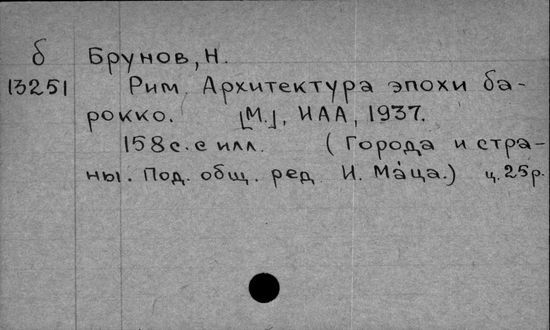 б Брунов, Н.
13251 Рим. Архитектура эпохи ба-
рокко. [М.], ИАА, 1937.
158 с. с илл. (Города и стра-
ны. Под. общ. ред И. Ма́ца.) ц. 25р.